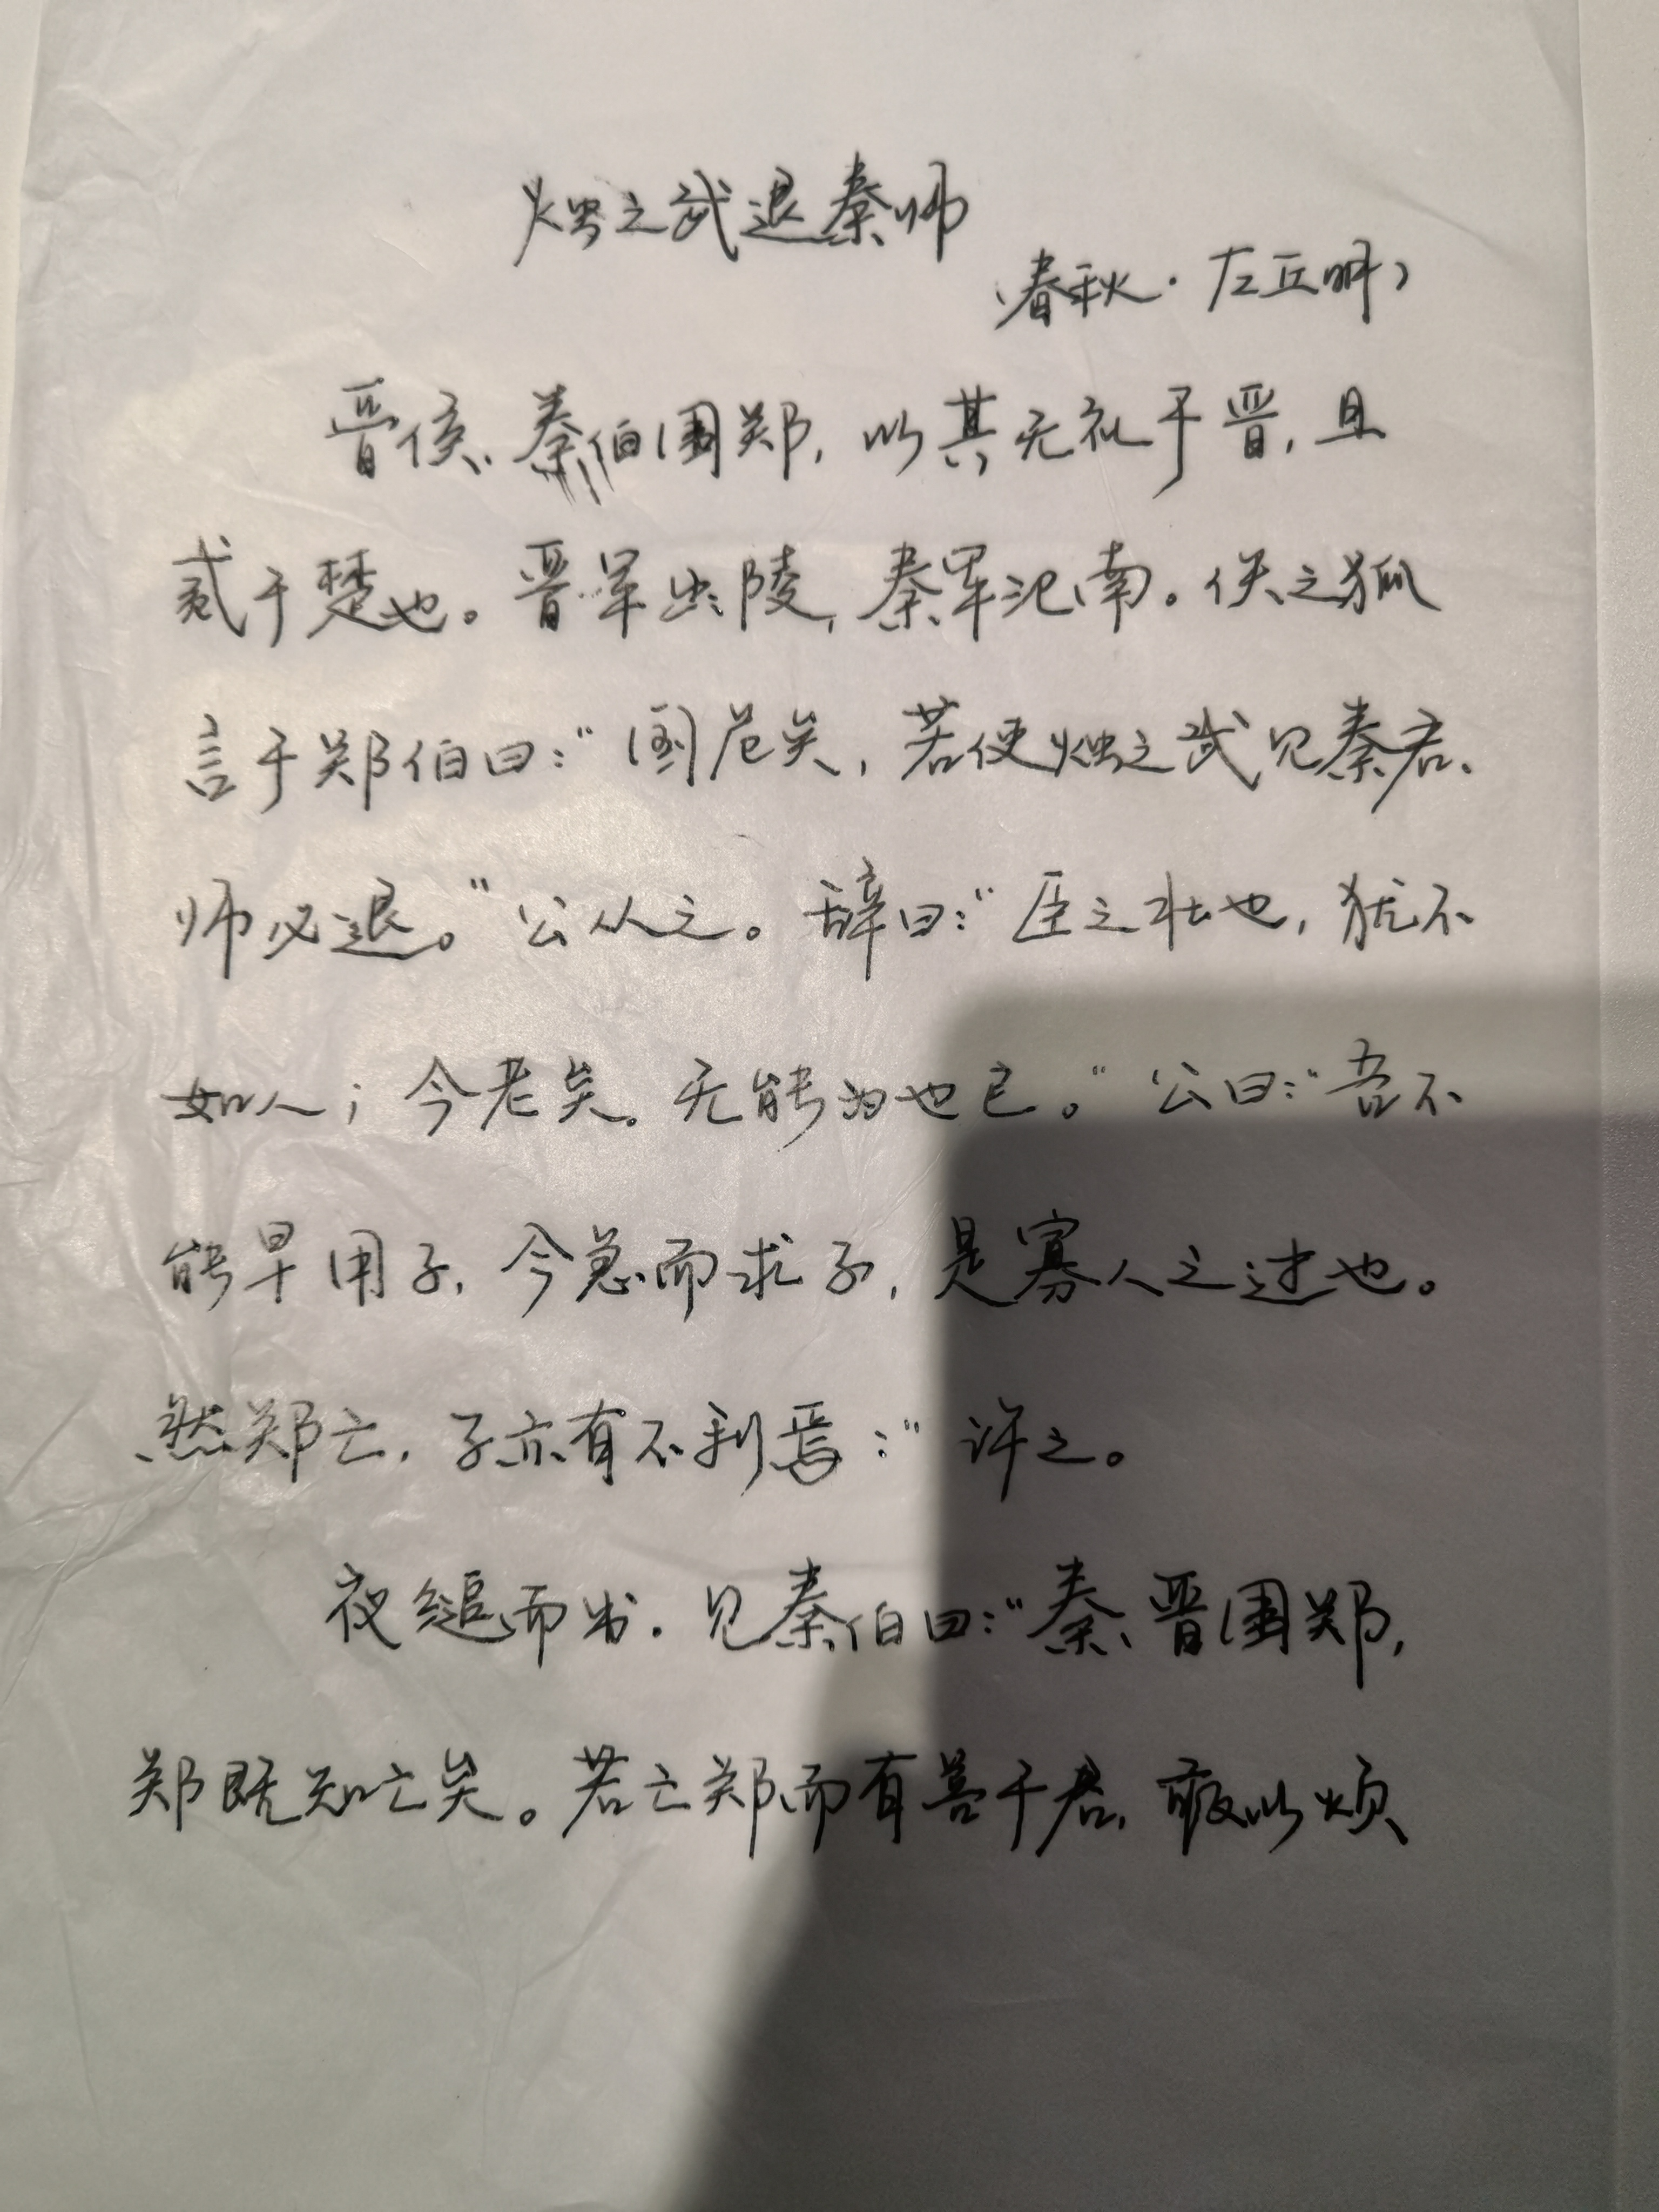 烛之武退秦师
(春秋·左丘明)
晋侯、秦伯围郑，以其无礼于晋，且
贰于楚也。晋军函陵，秦军氾南。佚之狐
言于郑伯曰：“国危矣，若使烛之武见秦君，
师必退。”公从之。辞曰：“臣之壮也，犹不
如人；今老矣。无能为也已。”公曰：“吾不
能早用子，今急而求子，是寡人之过也。
然郑亡，子亦有不利焉：”许之。
夜缒而出，见秦伯曰：“秦、晋围郑，
郑既知亡矣。若亡郑而有益于君，敢以烦